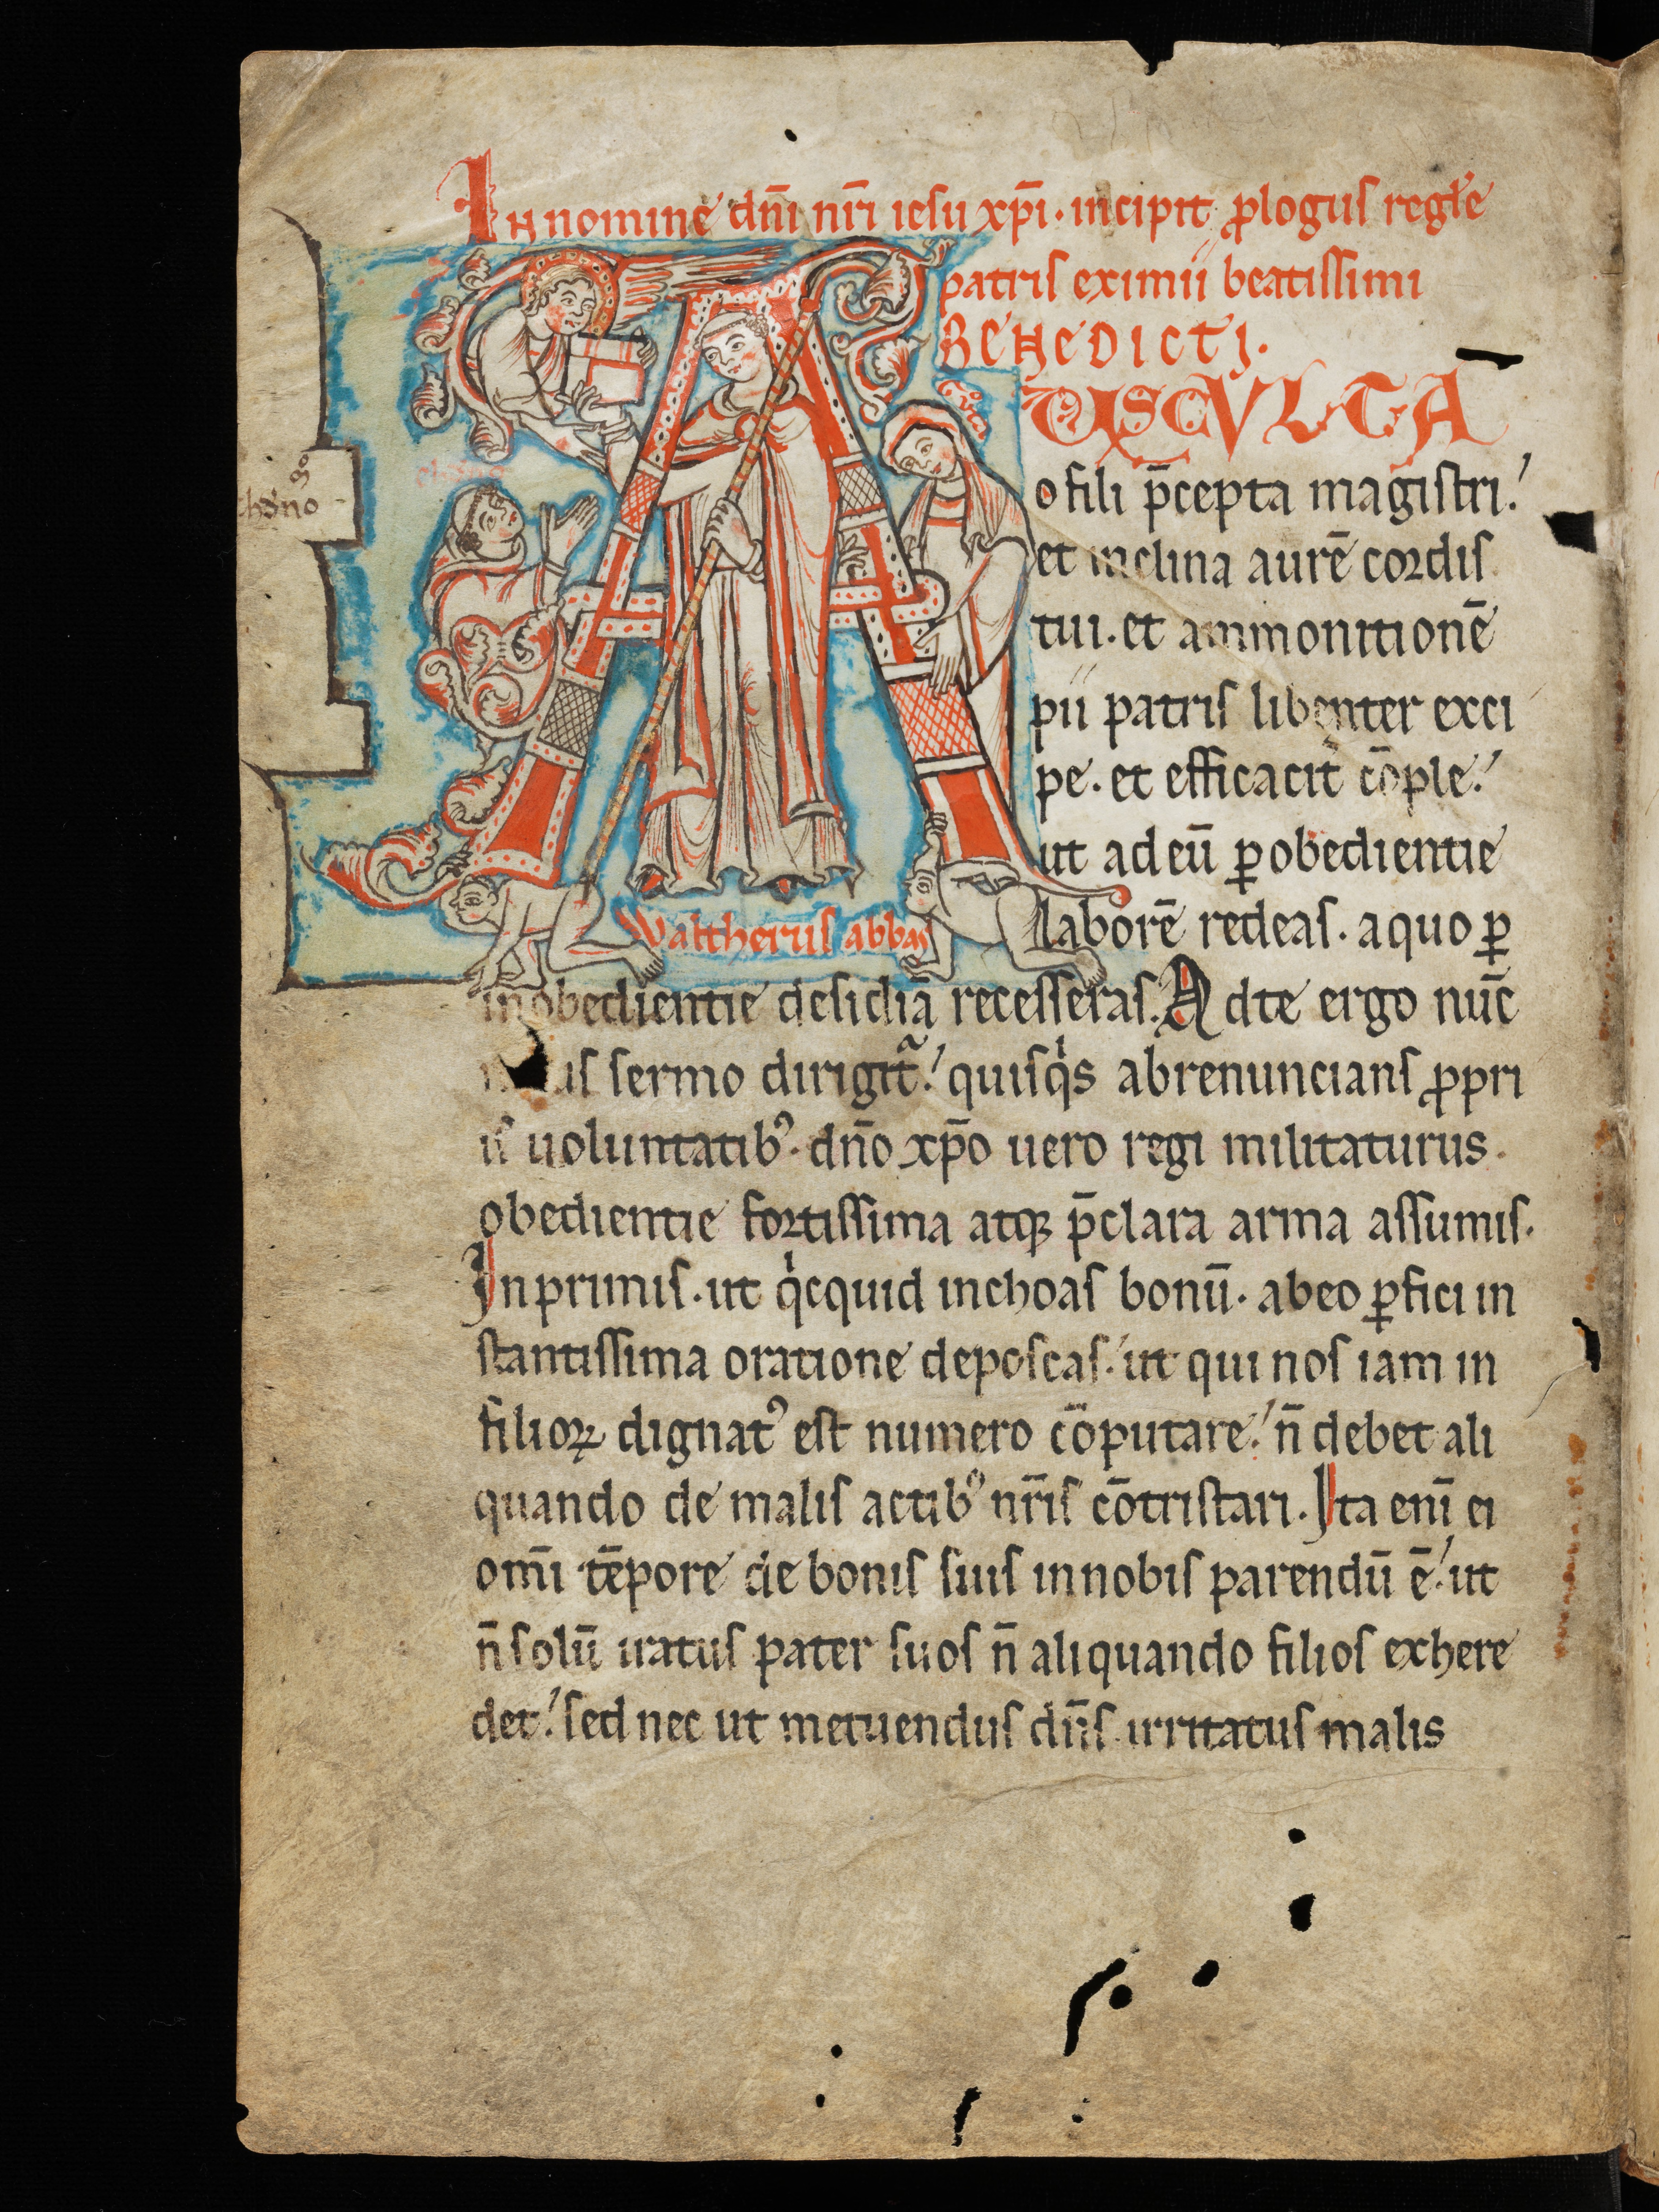 In nomine dn̄i nr̄i iesu xp̄i. incipit ꝓlogus regłe
patris eximii beatissimi
BENEDICTI.
AUSCVLTA
o fili p̄cepta magistri.
et inclina aurē cordis
tui. et ammonitionē
pii patris libenter exci
pe. et efficacit̓ cōple.
ut ad eū ꝑ obedientie
laborē redeas. a quo ꝑ
Waltherus abbas
inobedientie desidiā recesseras. Ad te ergo nūc
us sermo dirigitᷓ. quisqͥs abrenuncians ꝓpri
is uoluntatibꝰ. dn̄o xp̄o uero regi militaturus.
obedientie fortissima atqꝫ p̄clara arma assumis.
In primis. ut qͥcquid inchoas bonū. ab eo ꝑfici in
stantissima oratione deposcas. ut qui nos iam in
filioꝝ dignatꝰ est numero cōputare. n̄ debet ali
quando de malis actibꝰ nr̄is cōtristari. Ita enī ei
om̄i tēpore de bonis suis in nobis parendū ē. ut
n̄ solū iratus pater suos n̄ aliquando filios exhere
det. sed nec ut metuendus dn̄s irritatus malis